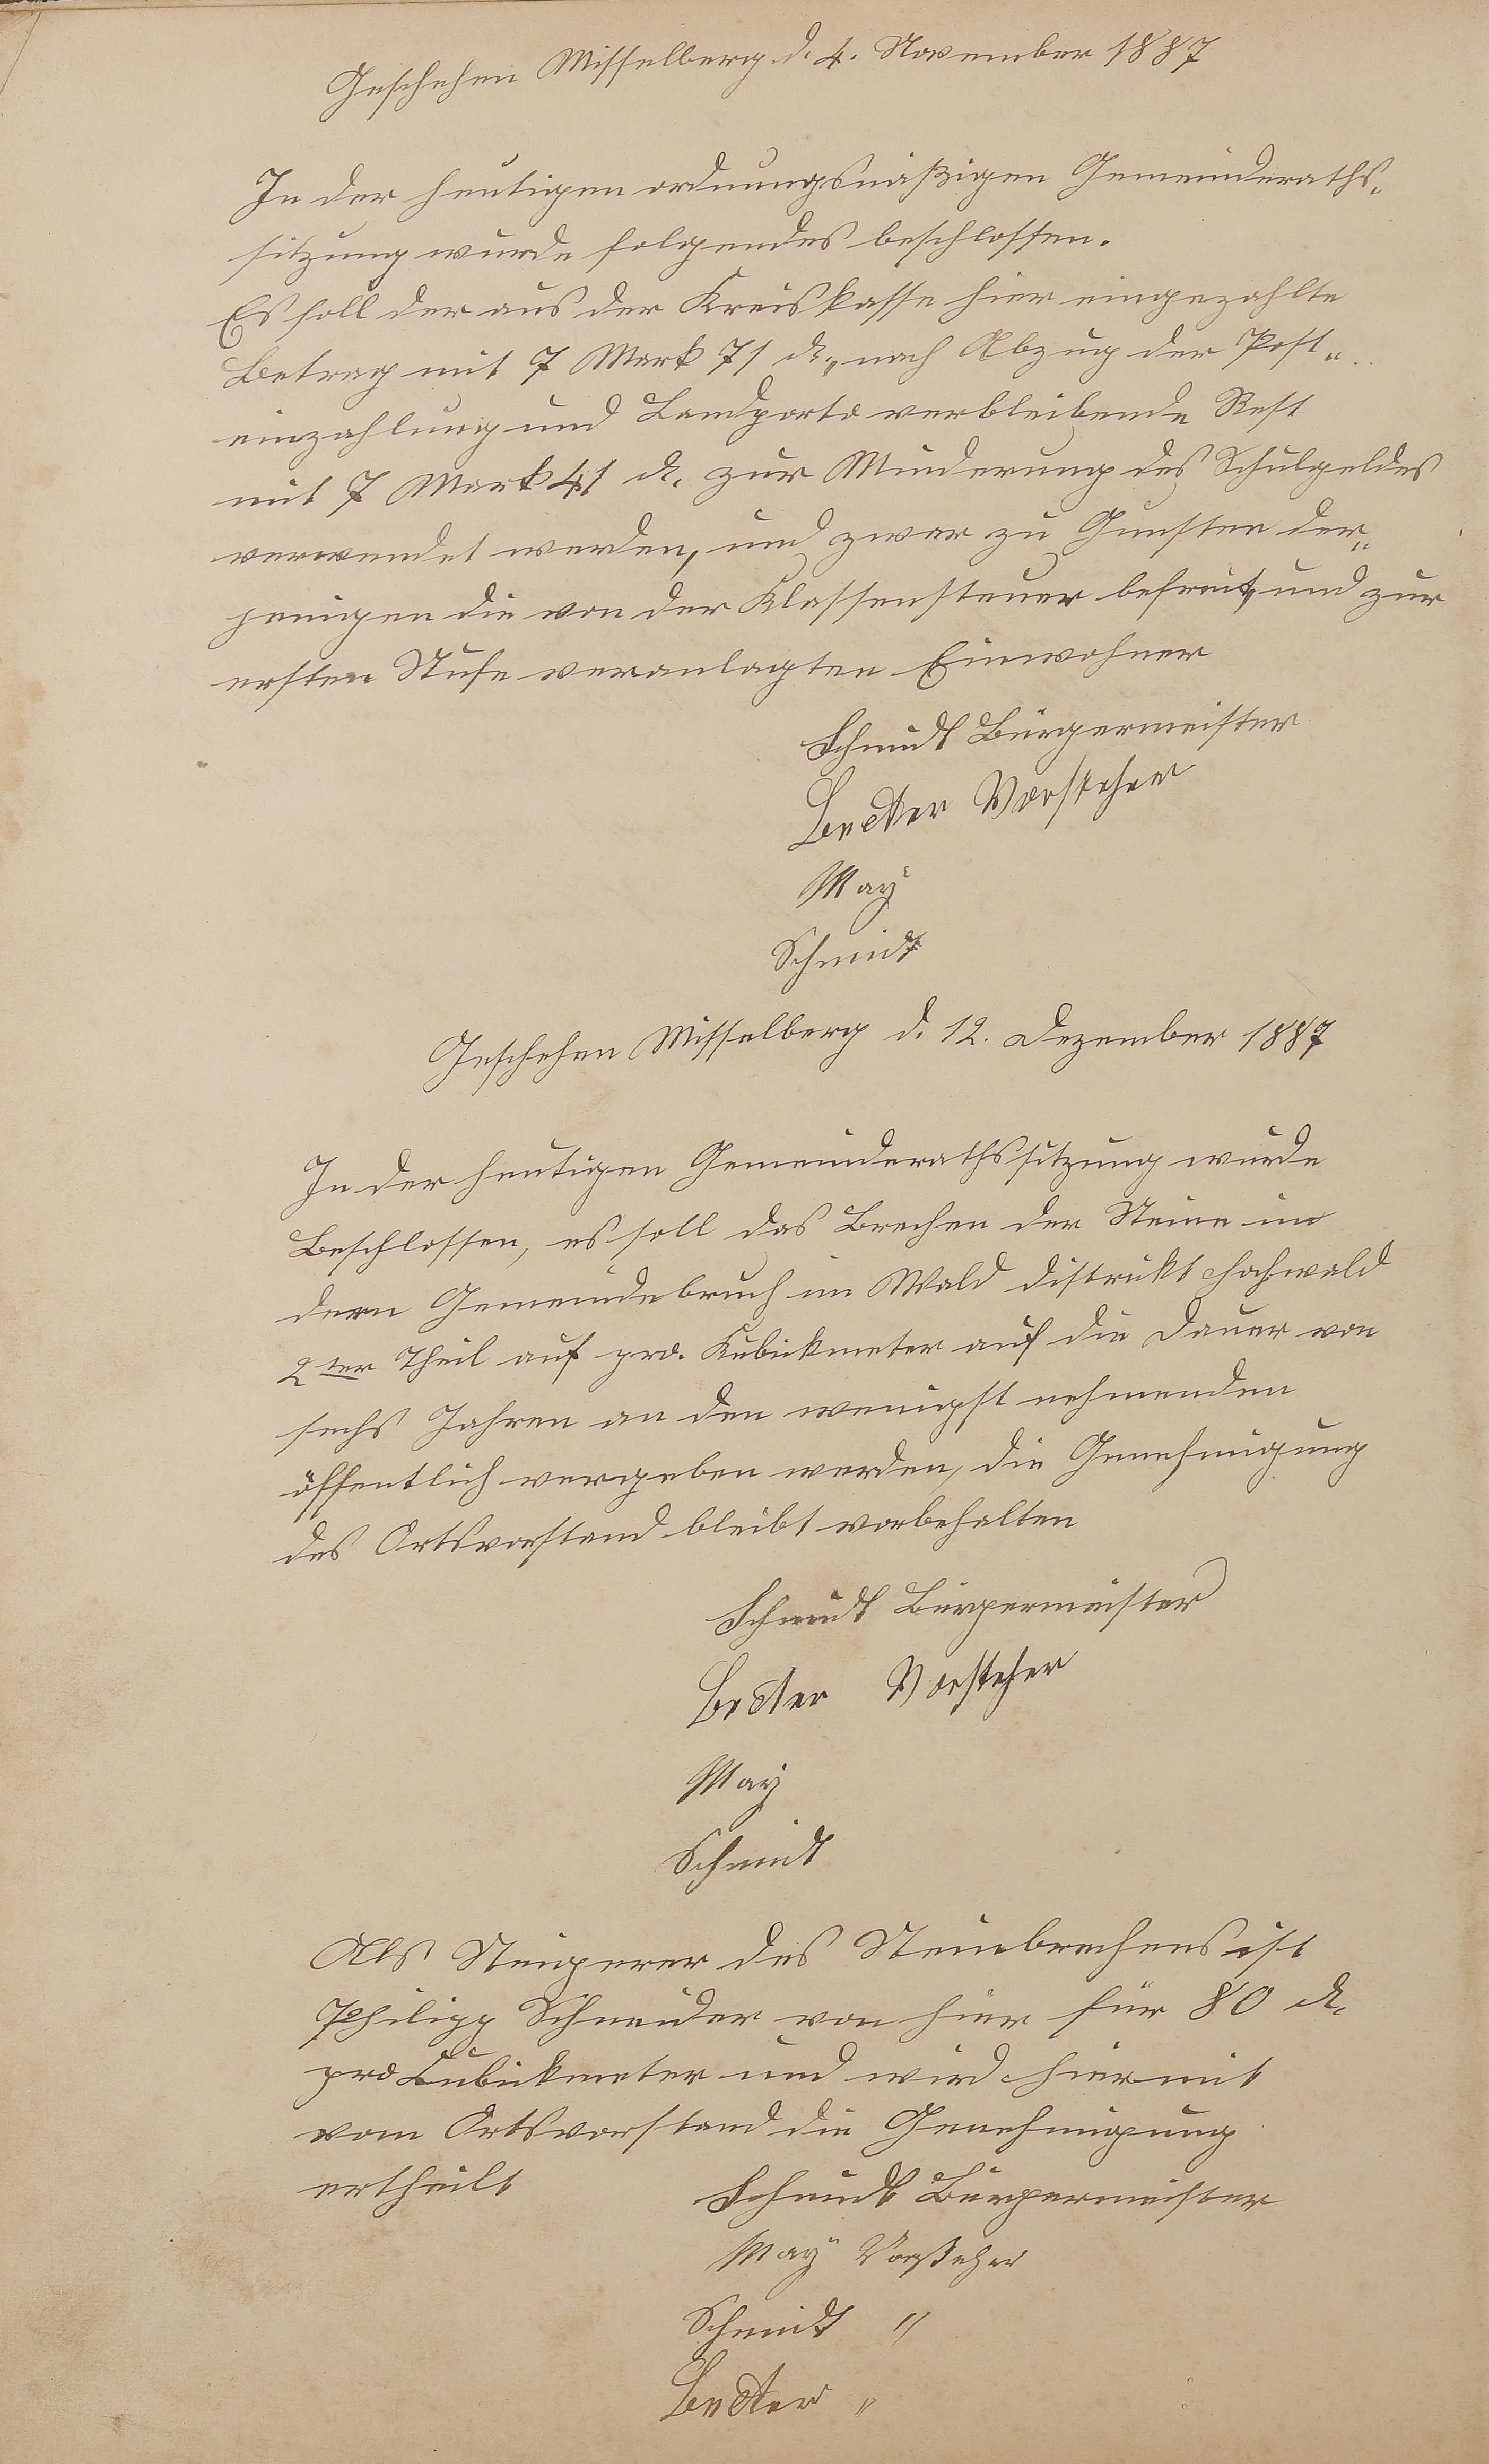 Geschehen Misselberg d. 4. November 1887
In der heutigen ordnungsmäßigen Gemeinderaths-
sitzung wurde folgendes beschlossen.
Es soll der aus der Kreiskasse hier eingezahlte
Betrag mit 7 Mark 71 ₰., nach Abzug der Post-
einzahlung und Landporto verbleibende Rest
mit 7 Mark 41 ₰. zur Minderung des Schulgeldes
verwendet werden, und zwar zu Gunsten der-
jenigen die von der Klassensteuer befreit, und zur
ersten Stufe veranlagten Einwohner
Schmidt Bürgermeister
Vorsteher
May
Schmidt
Geschehen Misselberg d. 12. Dezember 1887
In der heutigen Gemeinderathssitzung wurde
Beschlossen, es soll das Brechen der Steine in
dern Gemeindebruch im Wald distrikt Hochwald
2ter Theil auf pro. Kubickmeter auf die Dauer von
sechs Jahren an den wenigst nehmenden
öffentlich vergeben werden, die Genehmigung
des Ortsvorstand bleibt vorbehalten
Schmidt Bürgermeister
Vorsteher
May
Schmidt
Als Steigerer des Steinbrechens ist
Philipp Schneider von hier für 80 ₰.
pro Cubickmeter und wird hiermit
vom Ortsvorstand die Genehmigung
ertheilt
Schmidt Bürgermeister
May Vorsteher
Schmidt "
"